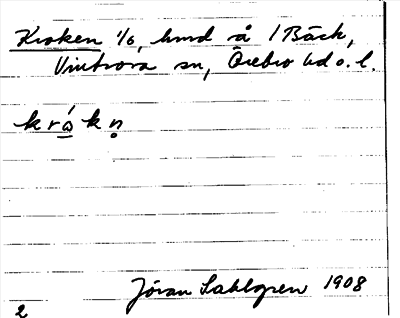 Kroken 1/6, hmd å 1 Bäck,
Vintrosa sn, Örebro hd o. l.
k r ǻ k n̥
Jöran Sahlgren 1908
2